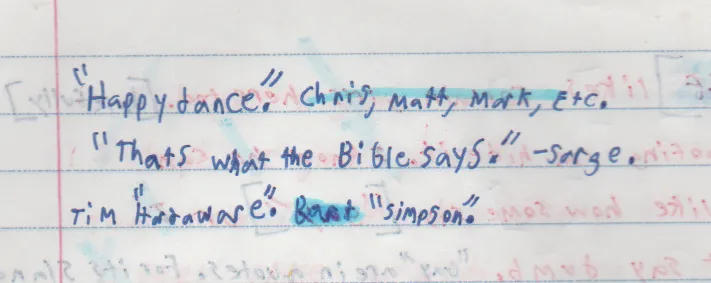 "Happy dance." Chris, Matt, Mark, Etc.
"Thats what the Bible says." -Sarge.
Tim "Hardaware". Bart "simpson".